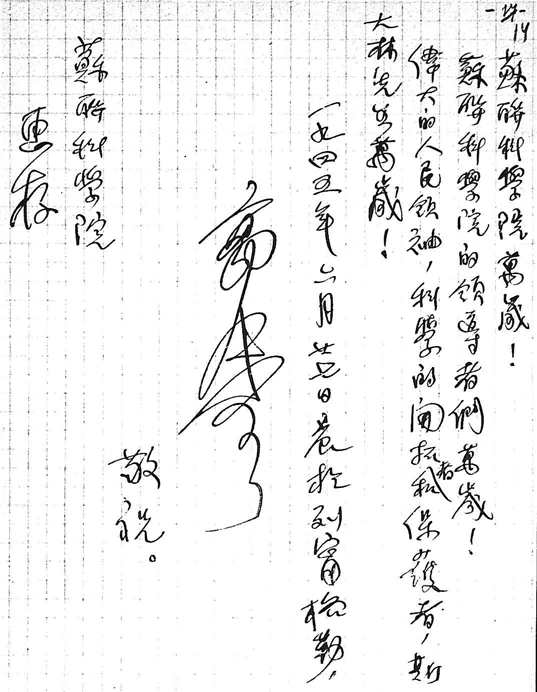 -14-
蘇聯科學院萬歲！
蘇聯科學院的領導者們萬歲！
偉大的人民領袖，科學的開拓者和保護者，斯
大林先生萬歲！
一九四五年六月廿八日晨於列寧格勒，
郭沫若
敬祝。
蘇聯科學院
惠存